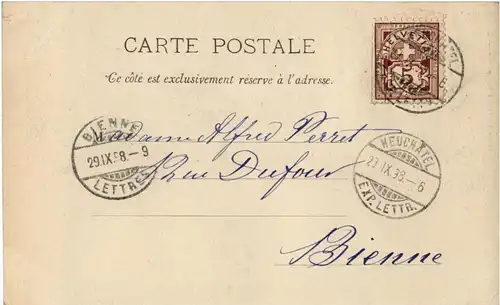 CARTE POSTALE
HELVETIA
Ce côté est exclusivement réservé à l'adresse.
BIENNE
29.IX.98.-9
LETTRES
NEUCHÂTEL
29.IX.98.-6
EXP. LETTR.
Madame Alfred Perret
Rue Dufour
Bienne